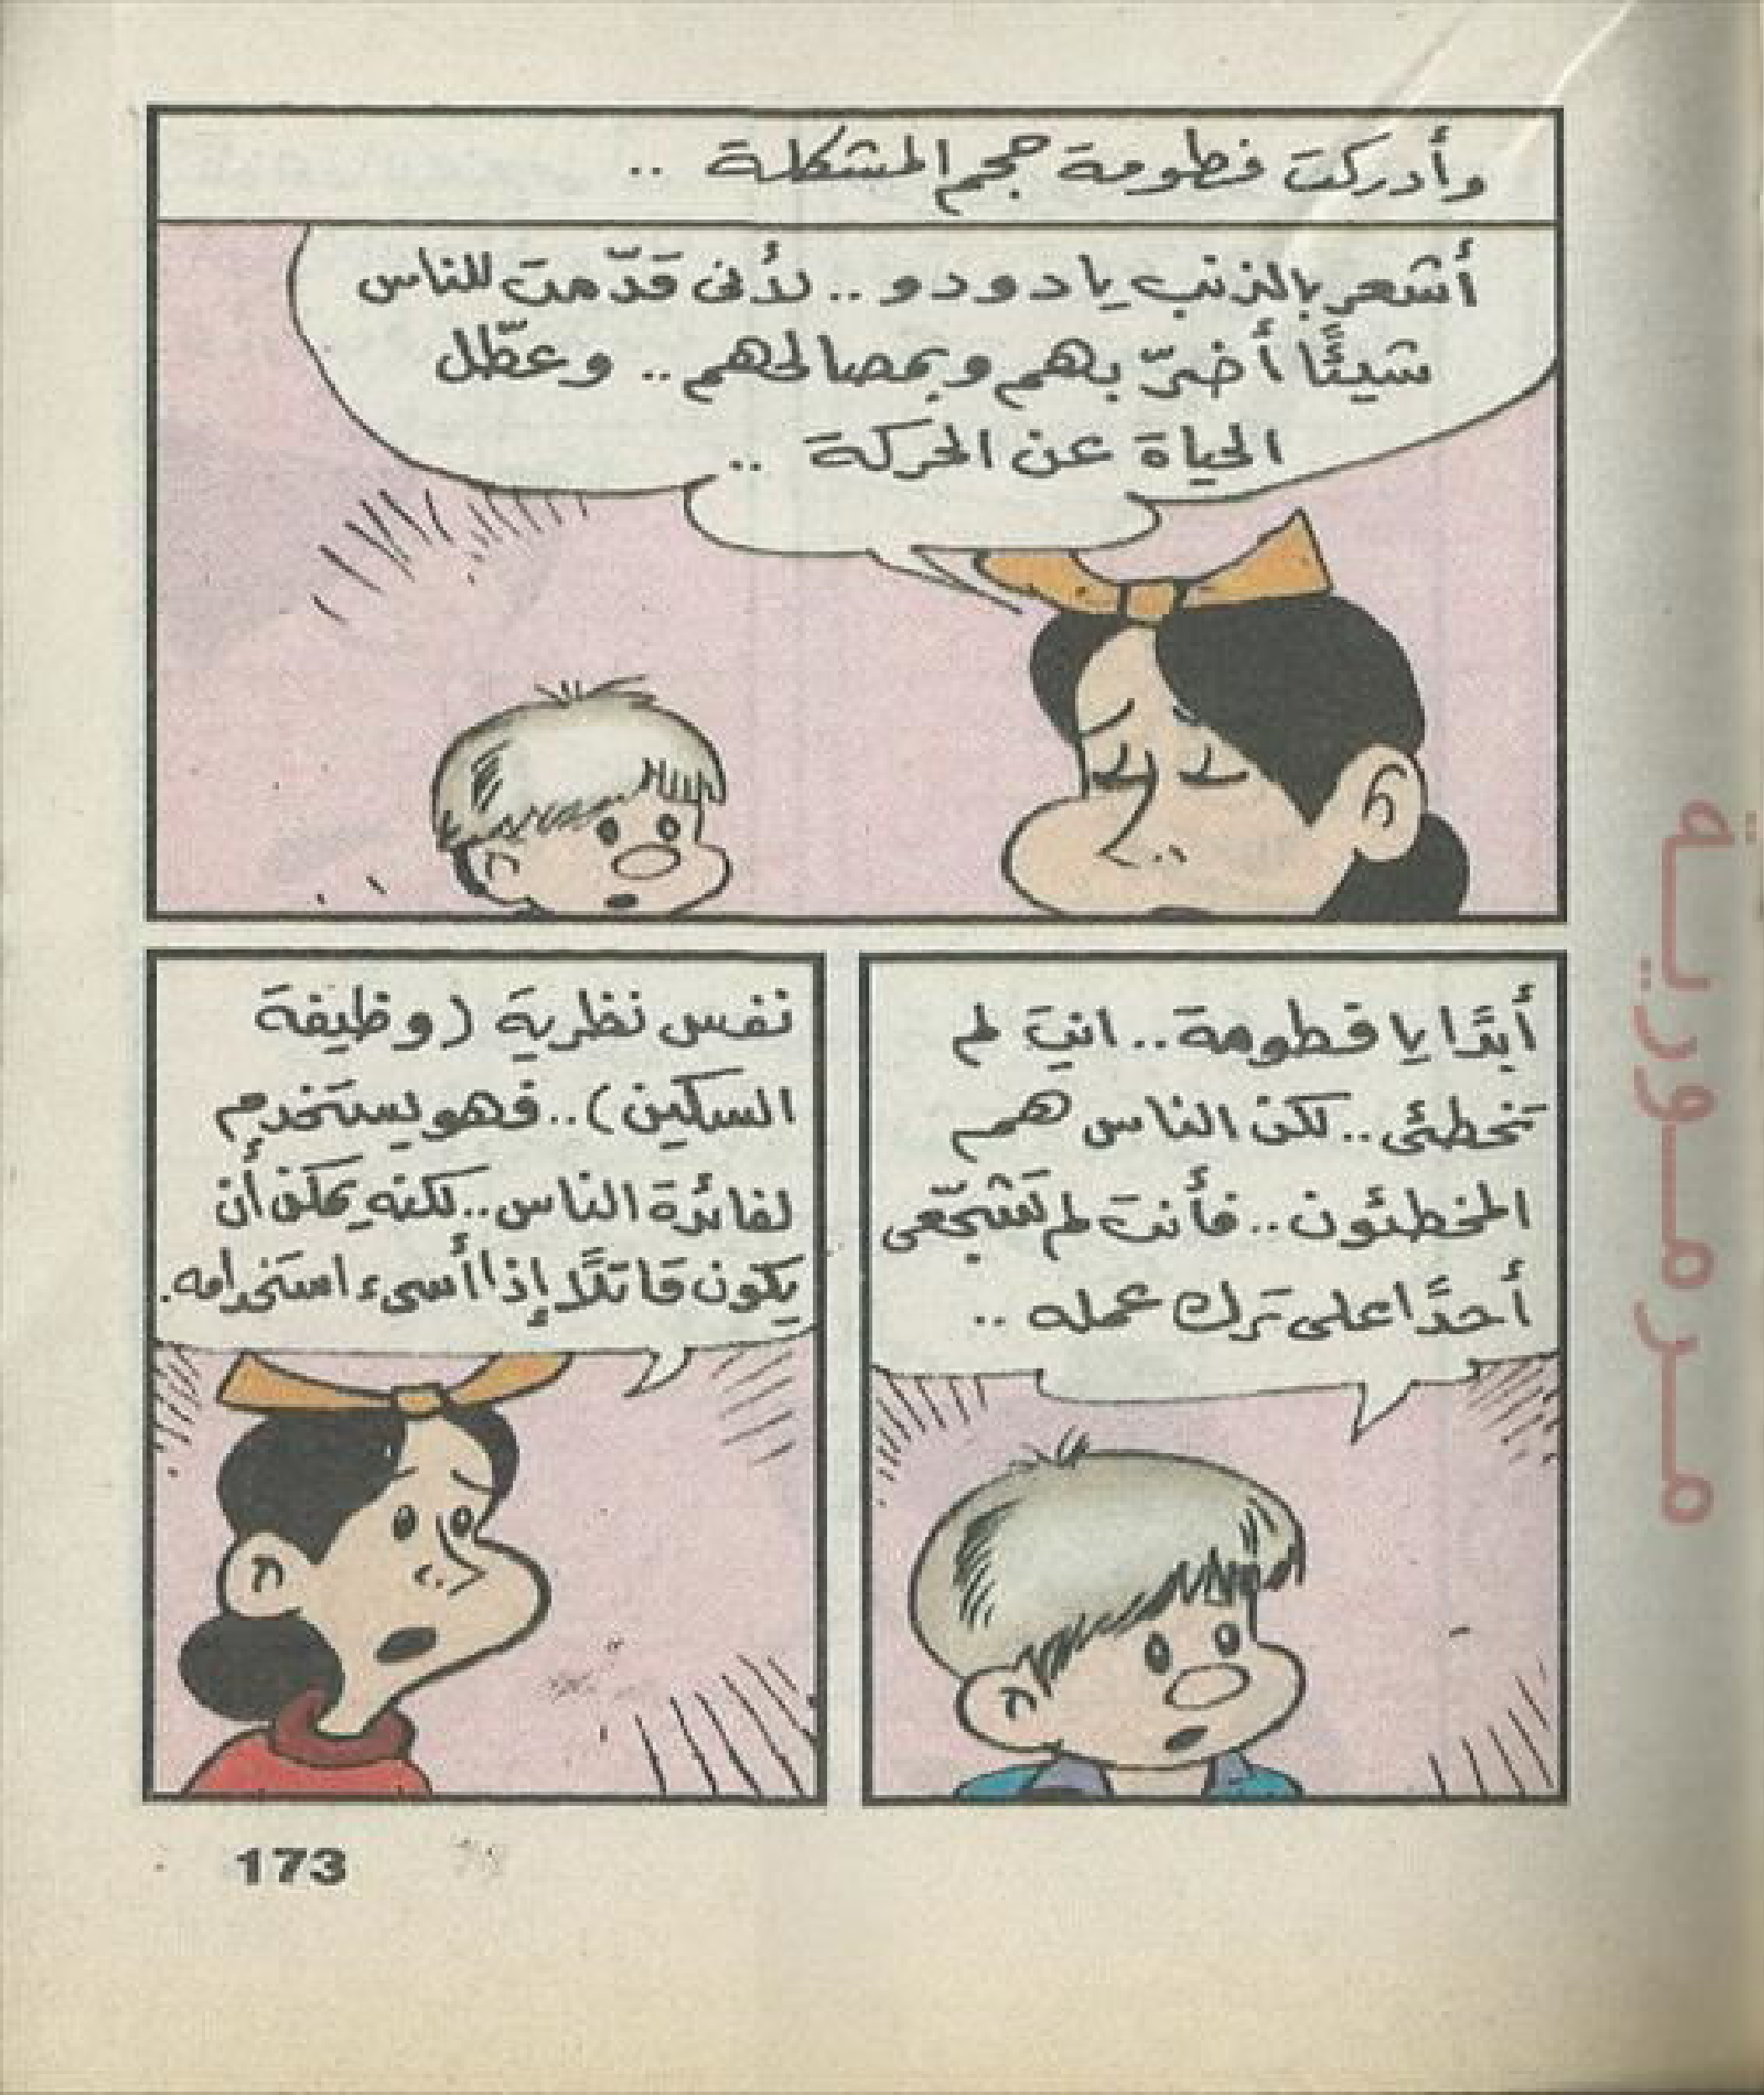 وأدركت فطومة حجم المشكلة ..
أشعر بالذنب يا دودو .. لأنى قدّمت للناس
شيئًا أضرّ بهم وبمصالحهم .. وعطّل
الحياة عن الحركة ..
أبدًا يا فطومة .. انتِ لم
تخطئى .. لكن الناس هم
المخطئون .. فأنت لم تشجّعى
أحدًا على ترك عمله ..
نفس نظرية (وظيفة
السكين) .. فهو يستخدم
لفائدة الناس .. لكنه يمكن أن
يكون قاتلًا إذا أسىء استخدامه.
173
مـرمـوريـة